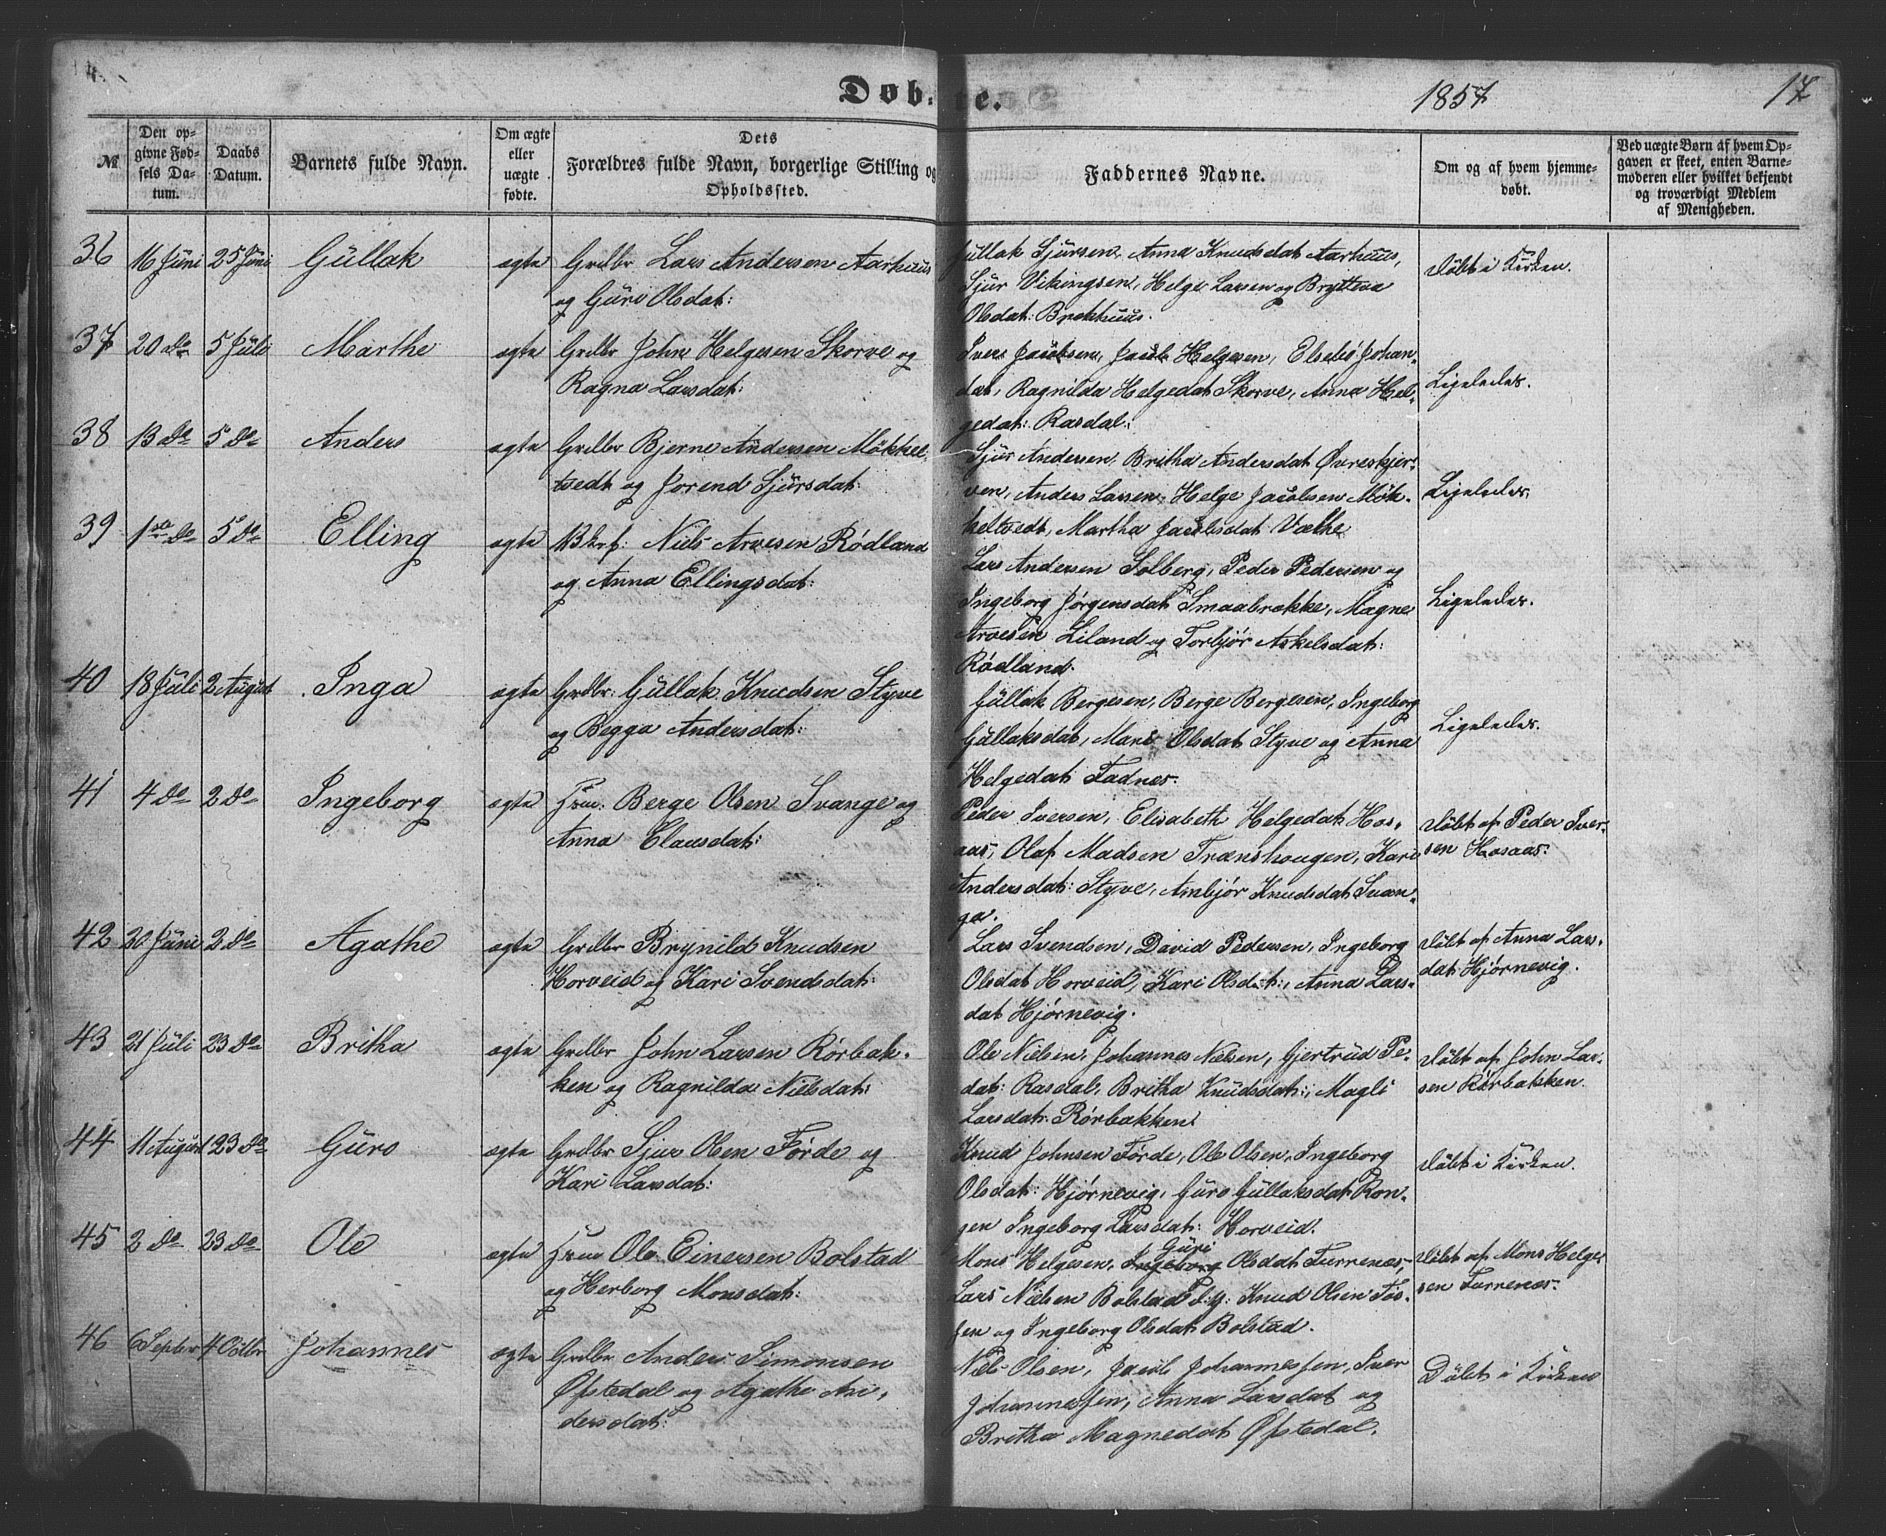 Døbte. 1857 17
No. Den opgivne Fødsels Datum. Daabs Datum. Barnets fulde Navn. Om ægte eller uægte fødte. Dets Forældres fulde Navn, borgerlige Stilling og Opholdssted. Faddernes Navne. Om og af hvem hjemmedøbt. Ved uægte Børn af hvem Opgaven er skeet, enten Barnemoderen eller hvilket bekjendt og troværdigt Medlem af Menigheden.
36 16 Juni 25 Juni Gullak ægte Grdbr Lars Andersen Aarhuus
og Guri Olsdat:
Gullak Sjursen, Anna Knudsdat Aarhuus,
Sjur Vikingsen, Helge Larsen og Brytteva
Olsdat: Brekhuus.
Døbt i Kirken.
37 20 do 5 Juli Marthe ægte Grdbr John Helgesen Skorve og
Ragna Larsdat:
Iver Jacobsen, Jacob Helgesen, Elsebe Johan-
dat, Ragnilda Helgedat Skorve, Anna Hel-
gedat: Rasdal.
Ligeledes.
38 13 do 5 do Anders ægte Grdbr Bjerne Andersen Møkkel-
tvedt og Jorend Sjursdat:
Sjur Andersen, Britha Andersdat Øvreskjer-
ven, Anders Larsen, Helge Jacobsen Møk-
keltvedt, Martha Jacobsdat: Væthe
Ligeledes
39 1ste do 5 do Elling ægte Bkrf: Niels Arvesen Rødland
og Anna Ellingsdat:
Lars Andersen Solberg, Peder Pedersen og
Ingeborg Jørgensdat Smaabrække, Magne
Arvesen Liland og Torbjør Askelsdat:
Rødland.
Ligeledes.
40 18 Juli 2 August Inga ægte Grdbr: Gullak Knudsen Styve
og Begga Andersdat:
Gullak Bergesen, Berge Bergesen, Ingeborg
Gullaksdat, Mari Olsdat Styve og Anna
Helgedat Fadnes.
Ligeledes.
41 4 do 2 do Ingeborg ægte Hmd: Berge Olsen Svange og
Anna Clausdat:
Peder Iversen, Elisabeth Helgedat Hos-
aas, Olaf Madsen Træshougen, Kari
Andersdat: Styve, Ambjør Knudsdat Svan-
ge.
Døbt af Peder Iver-
sen Hosaas:
42 20 Juni 2 do Agathe ægte Grdbr Brynild Knudsen
Horveid og Kari Svendsdat:
Lars Svendsen, David Pedersen, Ingeborg
Olsdat Horveid, Kari Olsdat:, Anna Lars-
dat Hjørnevig.
Døbt af Anna Lars-
dat Hjørnevig.
43 21 Juli 23 do Britha ægte Grdbr John Larsen Rørbak-
ken og Ragnilda Nielsdat:
Ole Nielsen, Johannes Nielsen, Gjertrud Pe-
dat: Rasdal, Britha Knudsdat:, Magli
Larsdat: Rørbakken.
Døbt af John Lar-
sen Rørbakken.
44 11 August 23 do Guro ægte Grdbr Sjur Olsen Førde og
Kari Larsdat:
Knud Johnsen Førde, Ole Olsen, Ingeborg
Olsdat: Hjørnevig, Guro Gullaksdat Ron-
gen Ingeborg Larsdat: Horveid.
Døbt i Kirken.
45 2 do 23 do Ole ægte Hmd Ole Einersen Bolstad
og Herborg Monsdat:
Guri
Mons Helgesen, Ingeborg Olsdat Furrenæs,
Lars Nielsen Bolstad d.y. Knud Olsen Fos-
sen og Ingeborg Olsdat Bolstad.
Døbt af Mons Helge-
sen Furrenæs.
46 6 Septbr 4 Octbr Johannes ægte Grdbr Anders Simonsen
Øfstedal og Agathe An-
dersdat:
Nils Olsen, Jacob Johannessen, Iver
Johannessen, Anna Larsdat og
Britha Magnedat Øfstedal.
Døbt i Kirken